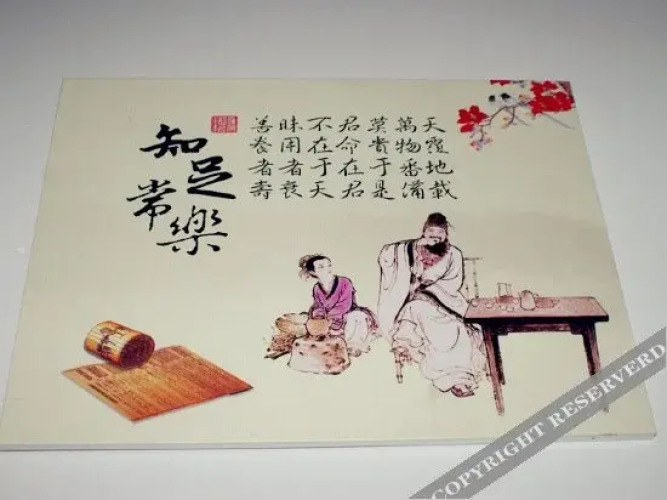 天覆地載
萬物悉備
莫貴于是
君命在君
不在于天
昧用者衰
善養者壽
知足
常樂
COPYRIGHT RESERVERD